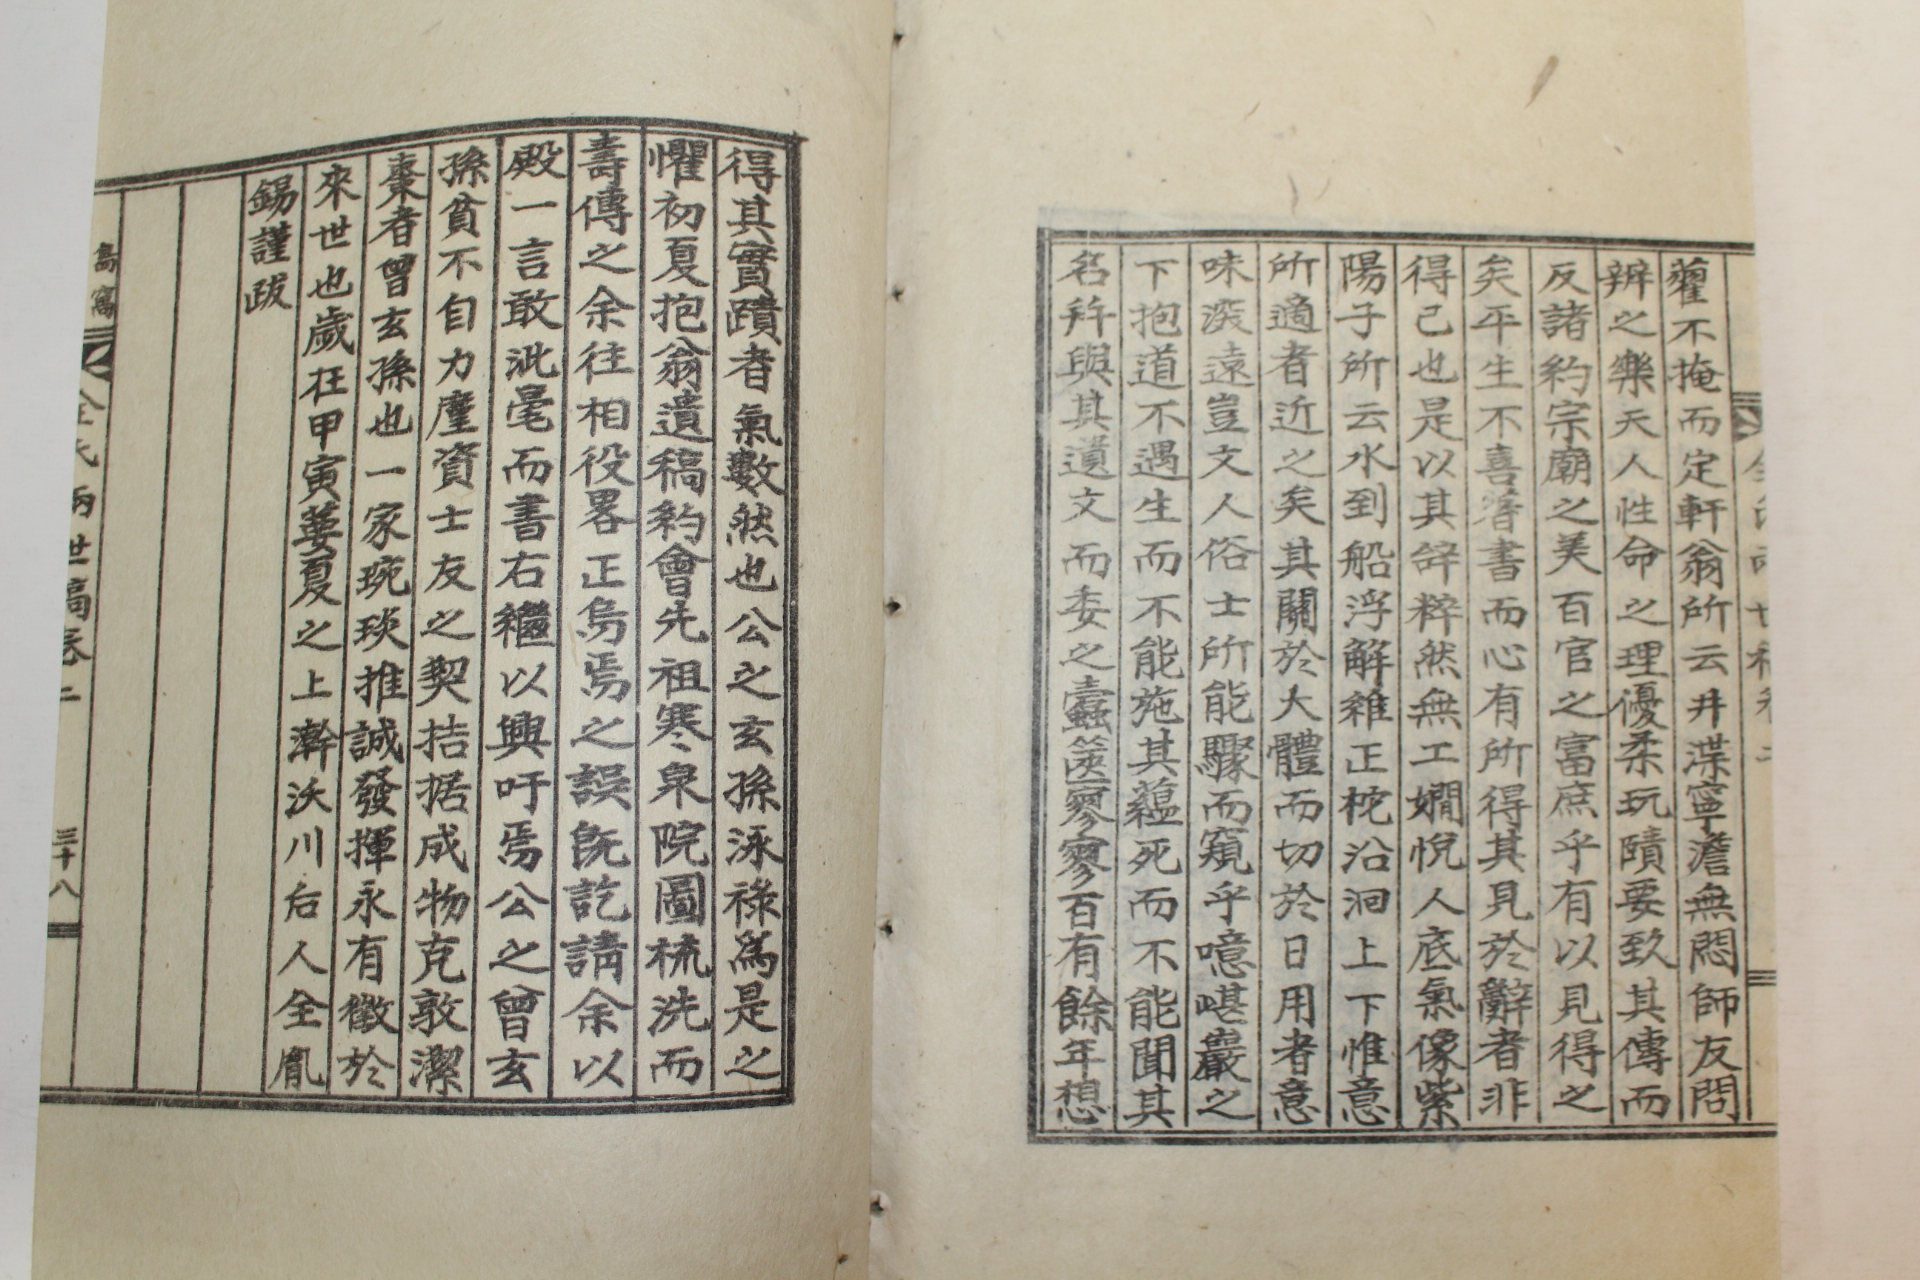 藿不掩而定軒翁所云井渫寧澹無悶師友問
辨之樂天人性命之理優柔玩賾要致其傳而
反諸約宗廟之美百官之富庶乎有以見得之
矣平生不喜著書而心有所得其見於辭者非
得已也是以其辞粹然無工嫺悅人底氣像紫
陽子所云水到船浮解維正柁沿洄上下惟意
所適者近之矣其關於大體而切於日用者意
味淡遠豈文人俗士所能驟而窺乎噫嵁巖之
下抱道不遇生而不能施其蘊死而不能聞其
名并與其遺文而委之蠹篋寥寥百有餘年想
得其實蹟者氣數然也公之玄孫泳祿爲是之
懼初夏抱翁遺稿約會先祖寒泉院圖梳洗而
壽傳之余往相役畧正烏焉之誤旣訖請余以
殿一言敢泚毫而書右繼以興吁焉公之曾玄
孫貧不自力廑資士友之契拮据成物克敦潔
棗者曾玄孫也一家琬琰推誠發揮永有徵於
來世也歲在甲寅蔞夏之上澣沃川后人全胤
錫謹跋
全氏兩世稿卷二
三十八